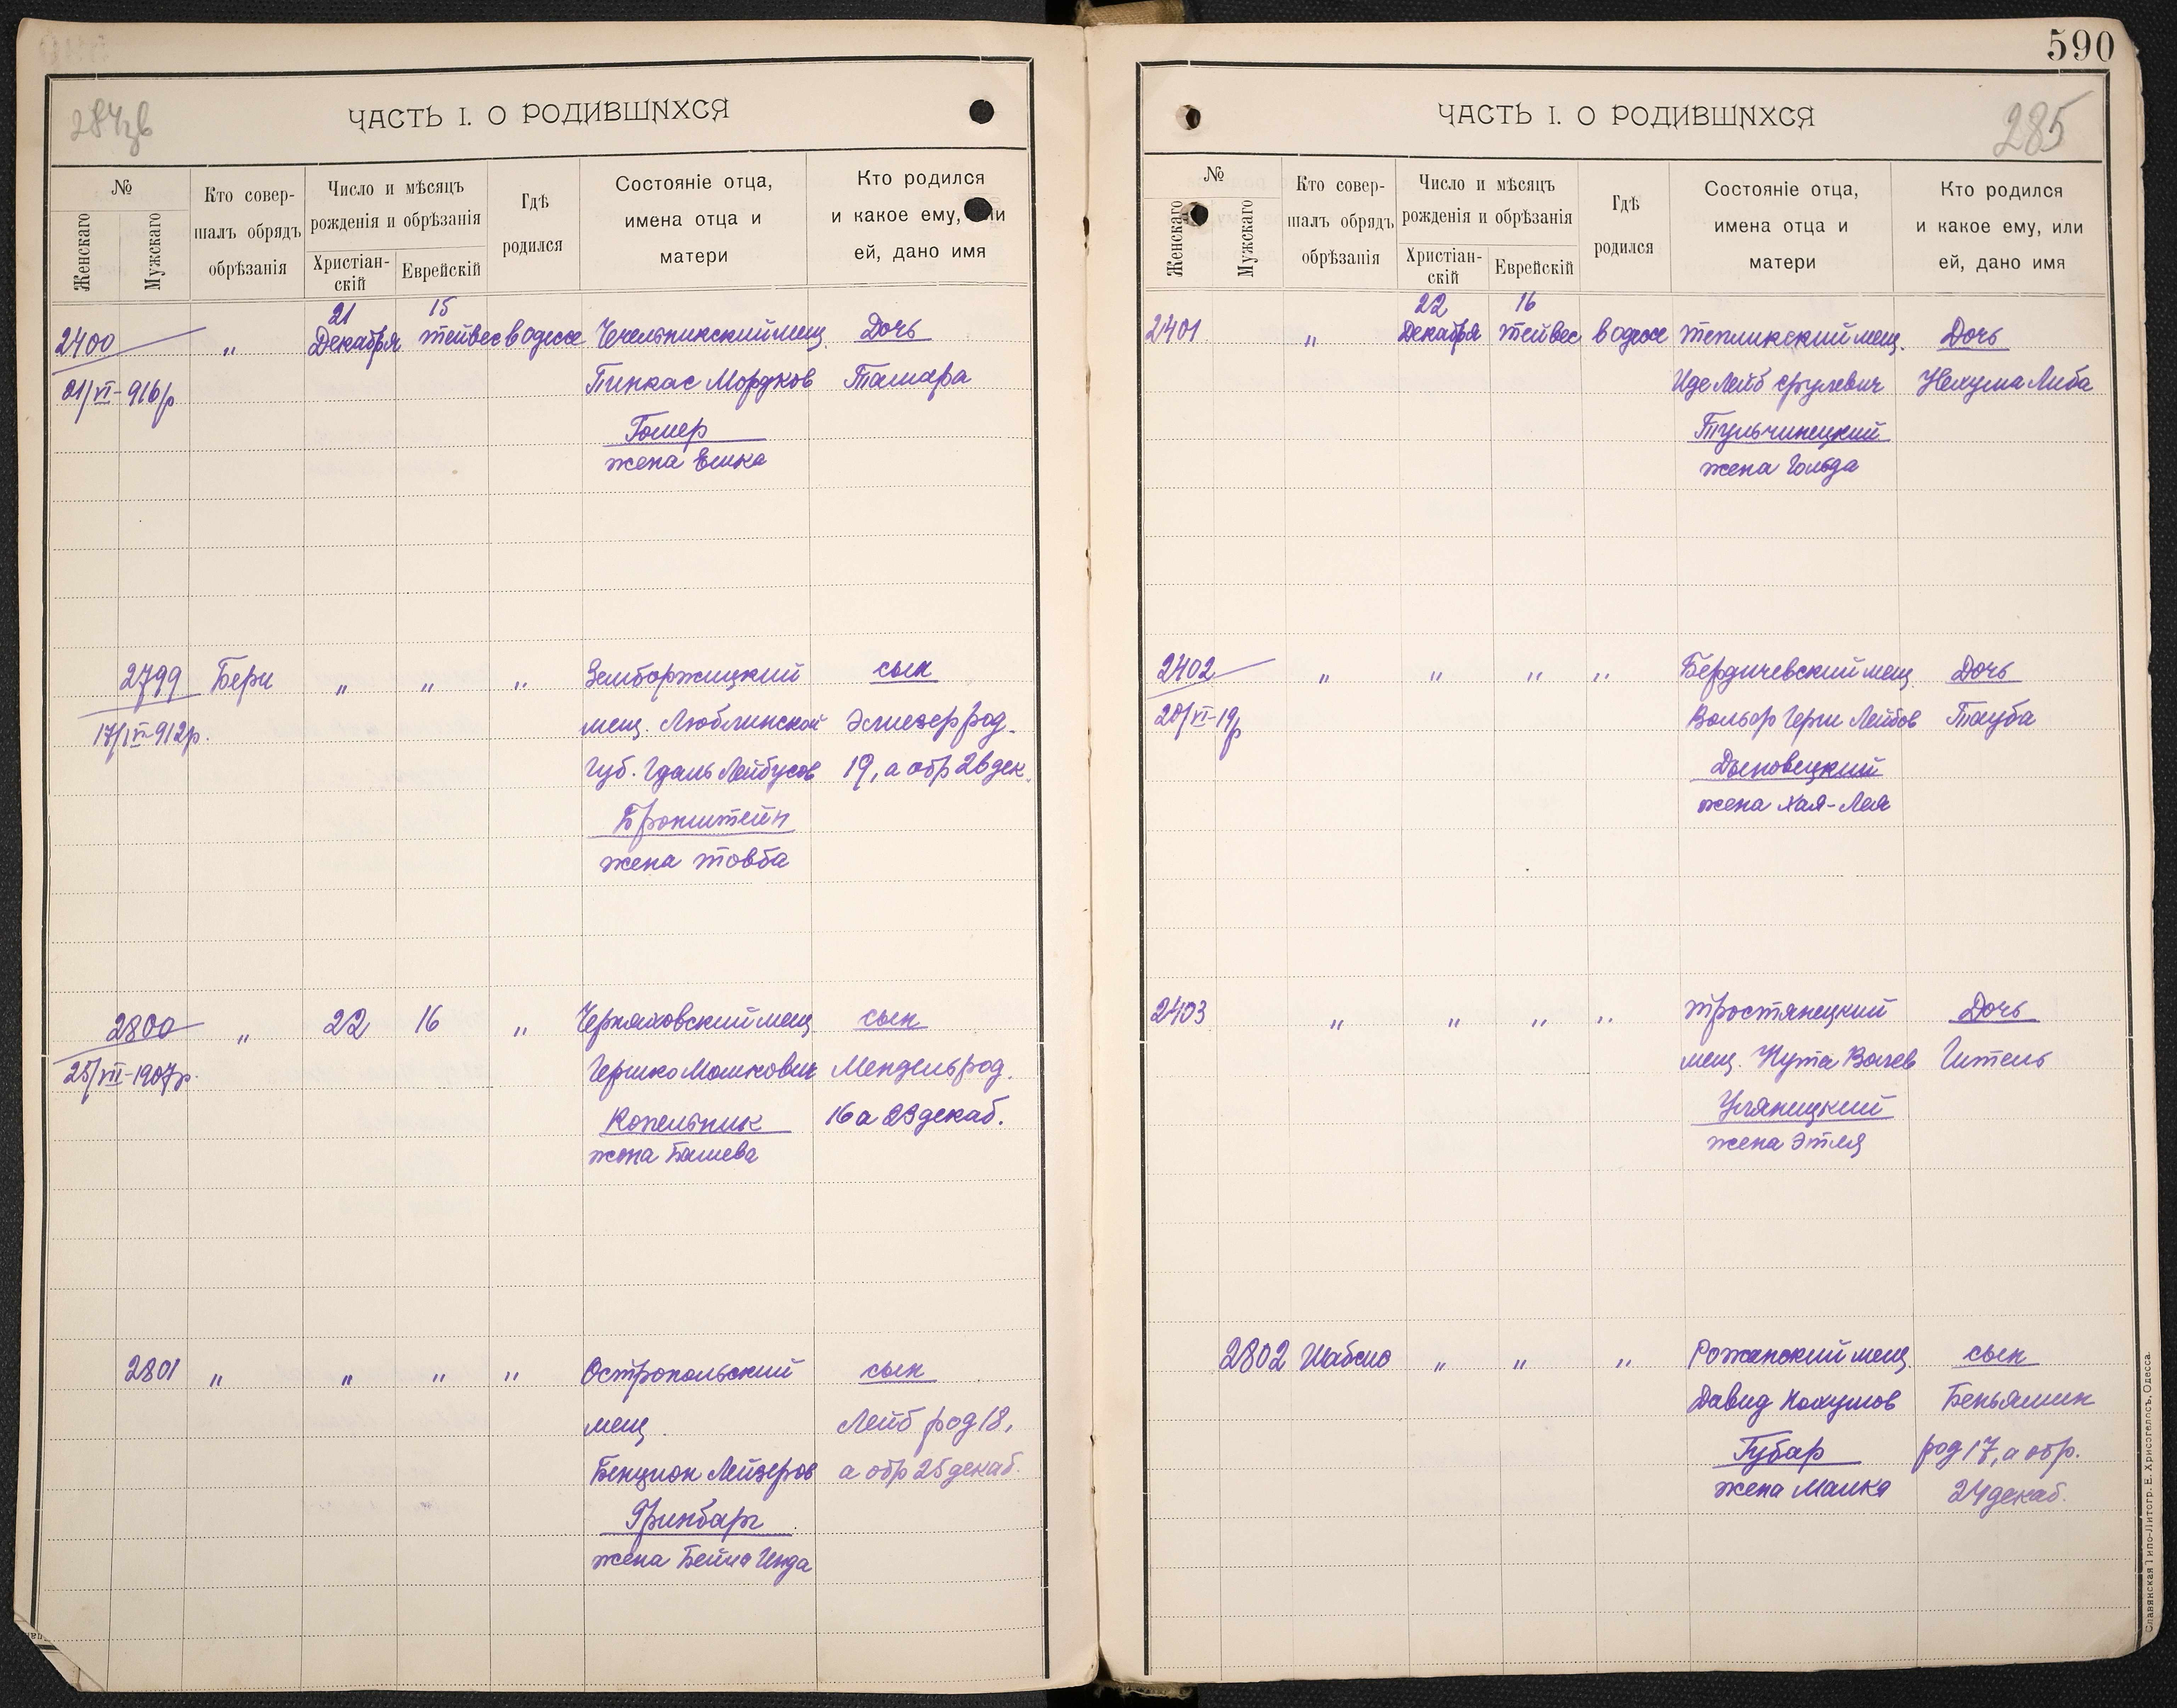 284зв
ЧАСТЬ I. О РОДИВШИХСЯ
№
Женскаго
Мужскаго
Кто совер-
шалъ обрядъ
обрѣзанія
Число и мѣсяцъ
рожденія и обрѣзанія
Христіан-
скій
Еврейскій
Гдѣ
родился
Состояніе отца,
имена отца и
матери
Кто родился
и какое ему, или
ей, дано имя
2400 " 21 Декабря 15 Тейвес в Одессе Чечельникский мещ. Дочь
21/VI-916р Пинкас Мордков Тамара
Гомер
жена Енка
2799 Бери " " " Земборжицкий сын
17/IV-912р. мещ. Люблинской Элиезер род.
губ. Гдаль Лейбусов 19, а обр 26 дек.
Бронштейн
жена Товба
2800 " 22 16 " Черняховский мещ сын
25/VII-1907р. Гершко Мошкович Мендель род.
Копельник 16 а 23 декаб.
жена Башева
2801 " " " " Остропольский сын
мещ. Лейб род 18,
Бенцион Лейзеров а обр 25 декаб.
Гринбарг
жена Бейла Инда
590
285
ЧАСТЬ I. О РОДИВШИХСЯ
№
Женскаго
Мужскаго
Кто совер-
шалъ обрядъ
обрѣзанія
Число и мѣсяцъ
рожденія и обрѣзанія
Христіан-
скій
Еврейскій
Гдѣ
родился
Состояніе отца,
имена отца и
матери
Кто родился
и какое ему, или
ей, дано имя
2401 " 22 Декабря 16 Тейвес в Одессе Тепликский мещ. Дочь
Иде Лейб Срулевич Нехума Либа
Тульчинецкий
жена Гольда
2402 " " " " Бердичевский мещ. Дочь
20/VI-19р Вольф Герш Лейбов Тауба
Дыновецкий
жена Хая-Лея
2403 " " " " Тростянецкий Дочь
мещ. Нута Волев Гитель
Уляницкий
жена Этля
2802 Шабсис " " " Рожанский мещ. сын
Давид Нохумов Беньямин
Губар род 17, а обр.
жена Малка 24 декаб.
Славянская Типо-Литогр. Е. Хрисогелосъ, Одесса.